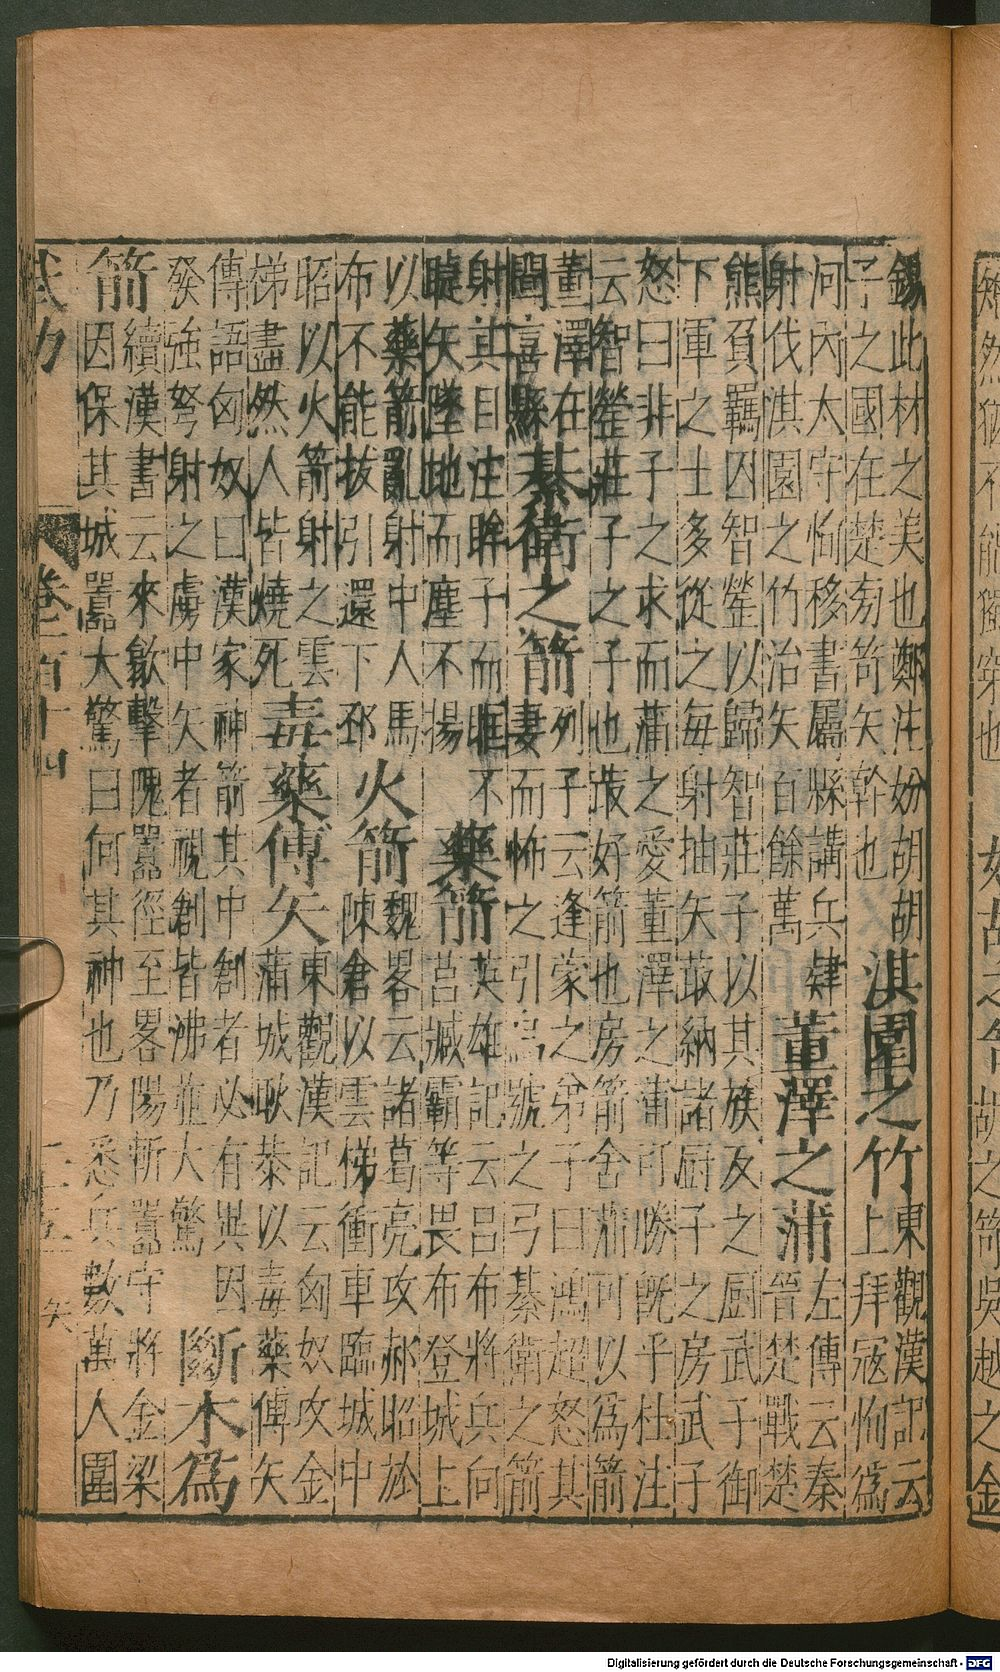 錫此材之美也鄭注妢胡胡
子之國在楚旁笴矢幹也
淇園之竹
東觀漢記云
上拜冦恂爲
河內太守恂移書屬縣講兵肄
射伐淇園之竹治矢百餘萬
董澤之蒲
左傳云秦
晉楚戰楚
熊負羈囚智罃以歸智莊子以其族反之厨武子御
下軍之士多從之每射抽矢菆納諸厨子之房武子
怒曰非子之求而蒲之愛董澤之蒲可勝旣乎杜注
云智罃莊子之子也菆好箭也房箭舍蒲可以爲箭
董澤在
聞喜縣
綦衛之箭
列子云逢蒙之弟子曰鴻超怒其
妻而怖之引烏號之弓綦衛之箭
射其目注眸子而眶不
睫矢墜地而塵不揚
藥箭
英雄記云呂布將兵向
莒臧霸等畏布登城上
以藥箭亂射中人馬
布不能拔引還下邳
火箭
魏畧云諸葛亮攻郝昭於
陳倉以雲梯衝車臨城中
昭以火箭射之雲
梯盡然人皆燒死
毒藥傅矢
東觀漢記云匈奴攻金
蒲城耿恭以毒藥傅矢
傳語匈奴曰漢家神箭其中創者必有異因
發強弩射之虜中矢者視創皆沸並大驚
斷木爲
箭
續漢書云來歙擊隗囂徑至畧陽斬囂守將金梁
因保其城囂大驚曰何其神也乃悉兵數萬人圍
武功
卷一百十四
二十五
矢
Digitalisierung gefördert durch die Deutsche Forschungsgemeinschaft - DFG